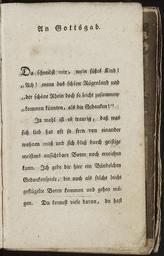 An Gottsgab.
Du schreibst mir, mein süßes Kind!
„Ach! wenn das schöne Rügenland und
„der schöne Rhein doch so leicht zusammen
„kommen könnten, als die Gedanken!"
Ja wohl ist es traurig, daß was
sich lieb hat oft so fern von einander
wohnen muß und sich bloß durch geistige
meistens unsichtbare Boten noch erreichen
kann. Ich gebe dir hier ein Bündelchen
Gedankenspiele, die auch als solche leicht
geflügelte Boten kommen und gehen mö-
gen. Du kennest viele davon, du hast